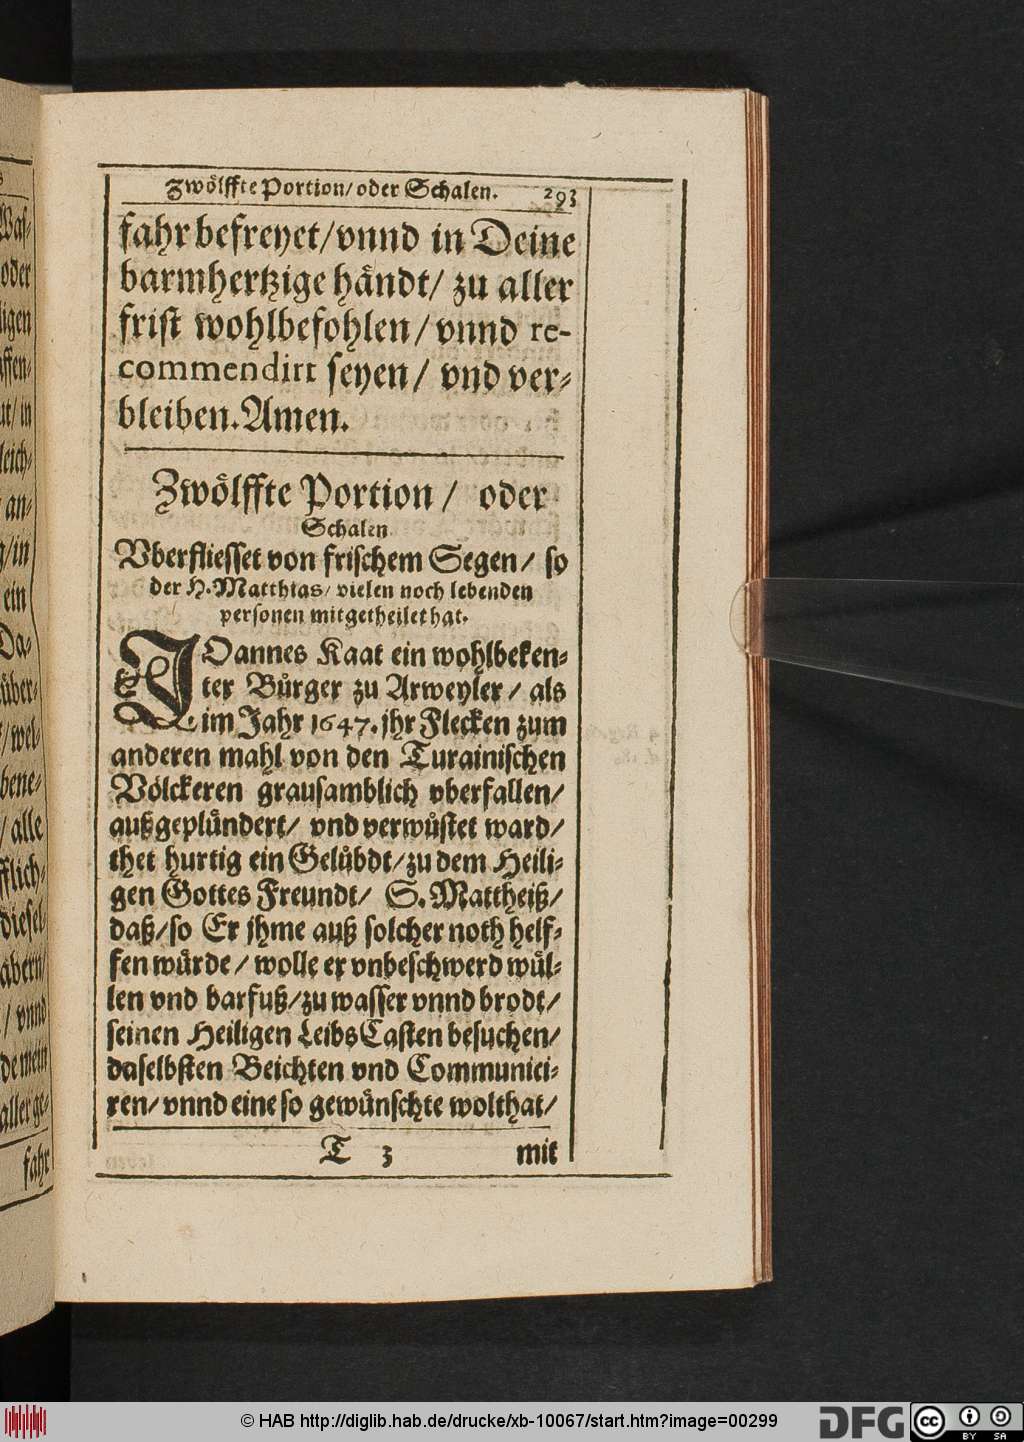 Zwölffte Portion/ oder Schalen. 293
fahr befreyet/ vnnd in Deine
barmhertzige händt/ zu aller
frist wohlbefohlen/ vnnd re-
commendirt seyen/ vnd ver-
bleiben. Amen.
Zwölffte Portion/ oder
Schalen
Vberfliesset von frischem Segen/ so
der H. Matthias/ vielen noch lebenden
personen mitgetheilet hat.
JOannes Kaat ein wohlbeken-
ter Bürger zu Arweyler/ als
im Jahr 1647. jhr Flecken zum
anderen mahl von den Turainischen
Völckeren grausamblich vberfallen/
außgeplündert/ vnd verwüstet ward/
thet hurtig ein Gelübdt/ zu dem Heili-
gen Gottes Freundt/ S. Mattheiß/
daß/ so Er jhme auß solcher noth helf-
fen würde/ wolle er vnbeschwerd wül-
len vnd barfuß/ zu wasser vnnd brodt/
seinen Heiligen Leibs Casten besuchen/
daselbsten Beichten vnd Communici-
ren/ vnnd eine so gewünschte wolthat/
T 3 mit
oder
ligen
ein
/ alle
/ vnnd
fahr
© HAB http://diglib.hab.de/drucke/xb-10067/start.htm?image=00299
DFG
cc BY SA